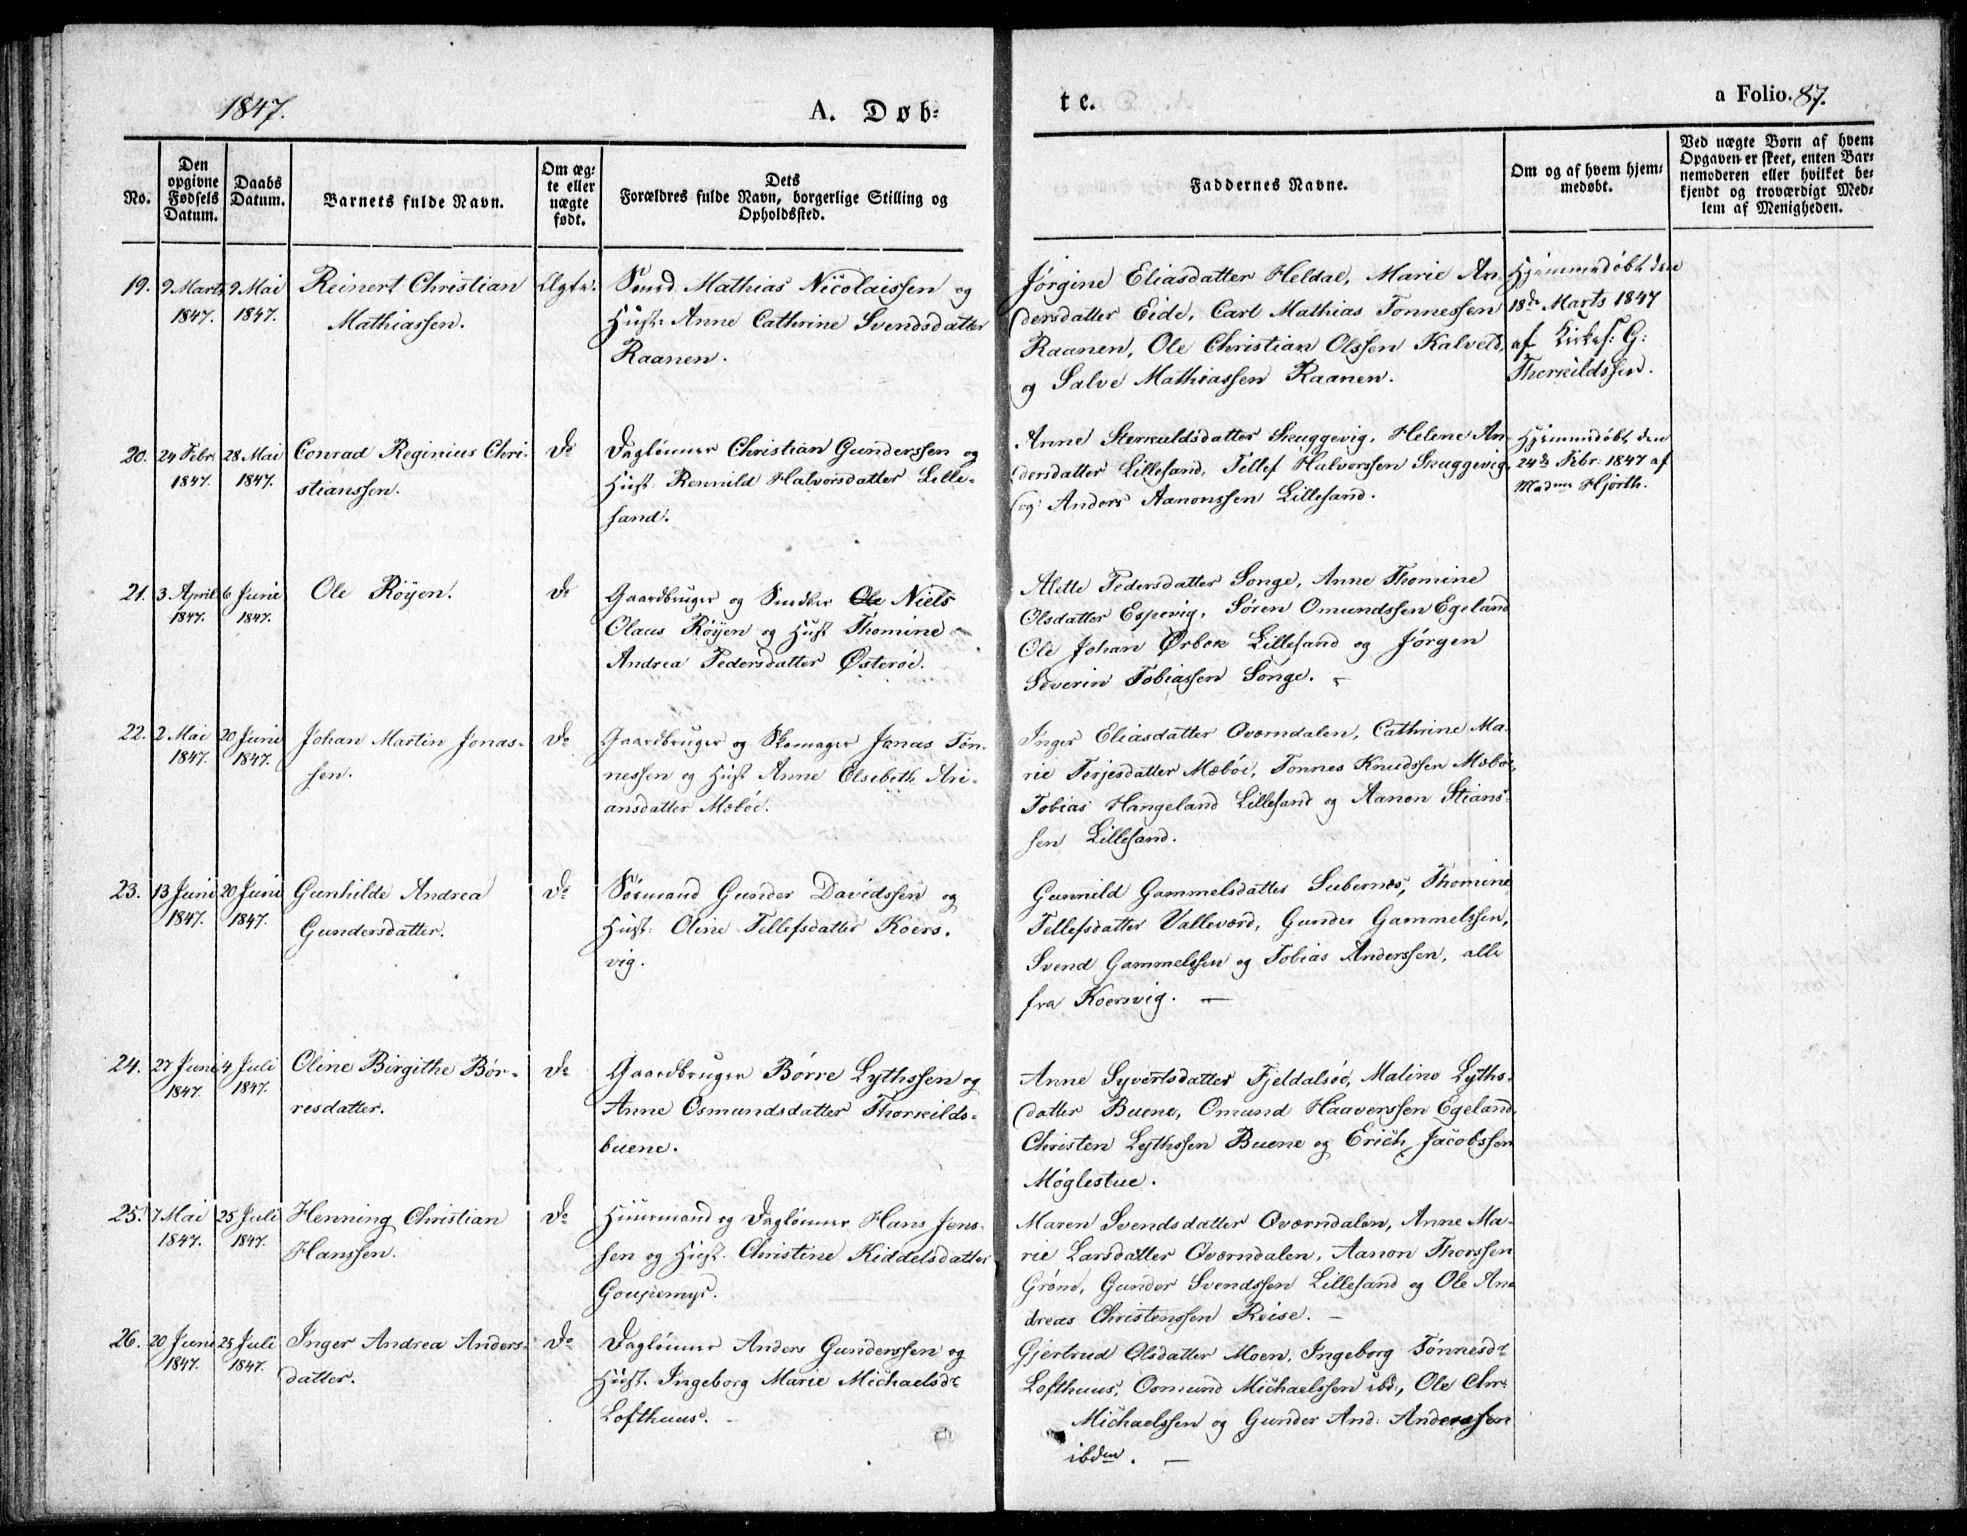 1847.
A. Døb=
te.
a Folio. 87.
No.
Den opgivne Fødsels Datum.
Daabs Datum.
Barnets fulde Navn.
Om æg= te eller uægte født.
Dets Forældres fulde Navn, borgerlige Stilling og Opholdssted.
Faddernes Navne.
Om og af hvem hjem= medøbt.
Ved uægte Børn af hvem Opgaven er skeet, enten Bar= nemoderen eller hvilket be= kjendt og troværdigt Med= lem af Menigheden.
19. 9 Marts 1847. 9 Mai 1847.
Reinert Christian
Mathiassen.
Ægte.
Smed Mathias Nicolaissen og
Hust: Anne Cathrine Svendsdatter
Raanen.
Jørgine Eliasdatter Heldal, Marie An-
dersdatter Eide, Carl Mathias Tønnessen
Raanen, Ole Christian Olssen Kalveld,
og Salve Mathiassen Raanen.
Hjemmedøbt den
18de Marts 1847
af Kirkes: G:
Therkildssen.
20. 24 Febr. 1847. 28 Mai 1847.
Conrad Reginius Chri-
stianssen.
Do
Daglønner Christian Gunderssen og
Hust. Rennild Halvorsdatter Lille-
sand.
Anne Sterkuldsdatter Skuggevig, Helene An-
dersdatter Lillesand, Tellef Halvorssen Skuggevig
og Anders Aanonssen Lillesand.
Hjemmedøbt den
24de Febr: 1847 af
Madme Hjorth.
21. 3 April 1847. 6 Juni 1847.
Ole Røyen.
Do
Gaardbruger og Snedker Ole Niels
Olaus Røyen og Hust Thomine
Andrea Pedersdatter Østerøe.
Alette Pedersdatter Songe, Anne Thomine
Olsdatter Espevig, Søren Omundssen Egeland
Ole Johan Ørbek Lillesand og Jørgen
Severin Tobiassen Songe.
22. 2 Mai 1847. 20 Juni 1847.
Johan Martin Jonas-
sen.
Do
Gaardbruger og Skomager Jonas Tøn-
nessen og Hust Anne Elsebeth Ari-
ansdatter Mæbøe.
Inger Eliasdatter Oværndalen, Cathrine Ma-
rie Terjesdatter Mæbøe, Tønnes Knudssen Mæbøe,
Tobias Hangeland Lillesand og Aanon Stians-
sen Lillesand.
23. 13 Juni 1847. 20 Juni 1847.
Gunhilde Andrea
Gundersdatter.
Do
Sømand Gunder Davidssen og
Hust: Oline Tellefsdatter Koers-
vig.
Gunnild Gammelsdatter Subernæs, Thomine
Tellefsdatter Valleværd, Gunder Gammelssen,
Svend Gammelssen og Tobias Anderssen, alle
fra Koersvig.
24. 27 Juni 1847. 4 Juli 1847.
Oline Birgithe Bør-
resdatter.
Do
Gaardbruger Børre Lythssen og
Anne Osmundsdatter Thorkilds-
buene.
Anne Syvertsdatter Fjeldalsøe, Maline Lyths-
datter Buene, Omund Haaverssen Egeland,
Christen Lythssen Buene og Erich Jacobssen
Møglestue.
25. 7 Mai 1847. 25 Juli 1847.
Henning Christian
Hanssen.
Do
Huusmand og Daglønner Hans Jens-
sen og Hust. Christine Kiddelsdatter
Maren Svendsdatter Oværndalen, Anne Ma-
rie Larsdatter Oværndalen, Aanon Thorssen
Grøm, Gunder Svendssen Lillesand og Ole An-
dreas Christenssen Reise.
26. 20 Juni 1847. 25 Juli 1847.
Inger Andrea Anders-
datter.
Do
Daglønner Anders Gunderssen og
Hust. Ingeborg Marie Michaelsdr
Lofthuus.
Gjertrud Olsdatter Moen, Ingeborg Tønnesdr
Lofthuus, Osmund Michaelssen ibd:, Ole Chr:
Michaelssen og Gunder And: Anderssen
ibdem.